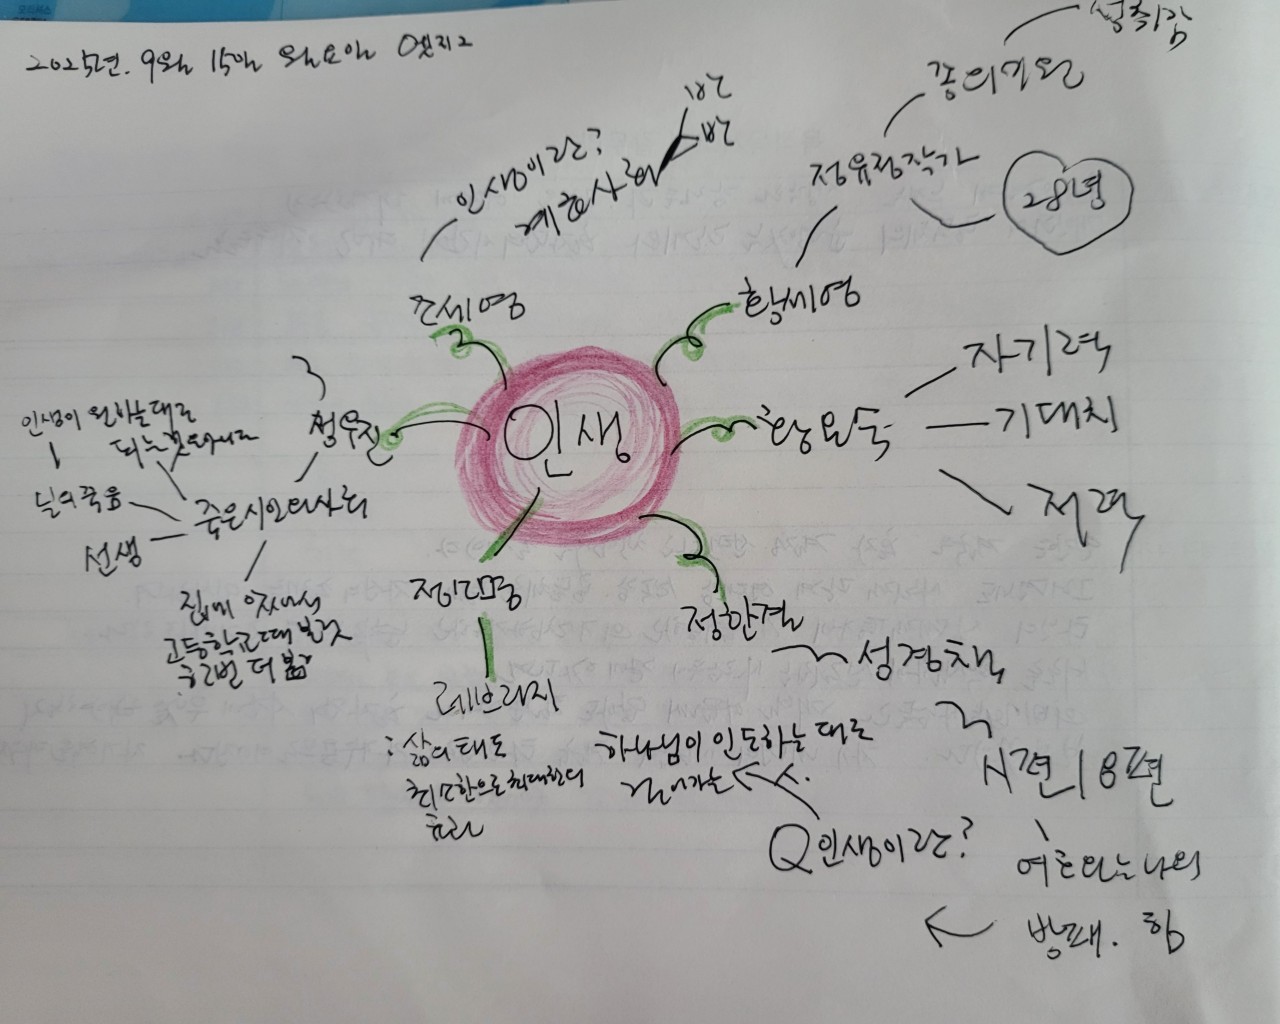 2025년. 9월 15일 월요일 엣지2
성취감
종의기원
정유정작가
28년
황세영
인생이란?
조세영
인생
자기력
기대치
저력
정우진
인생이 원하는대로
되는것도아니고
닐의죽음
선생
죽은시인의사회
집에 와서
고등학교때 본것
후 2번 더 봄
레버리지
: 삶의 태도
최소한으로 최대한의
효과
정한결
성경책
시편 18편
여호와는 나의
방패. 힘
Q 인생이란?
하나님이 인도하는 대로
걸어가는 것.